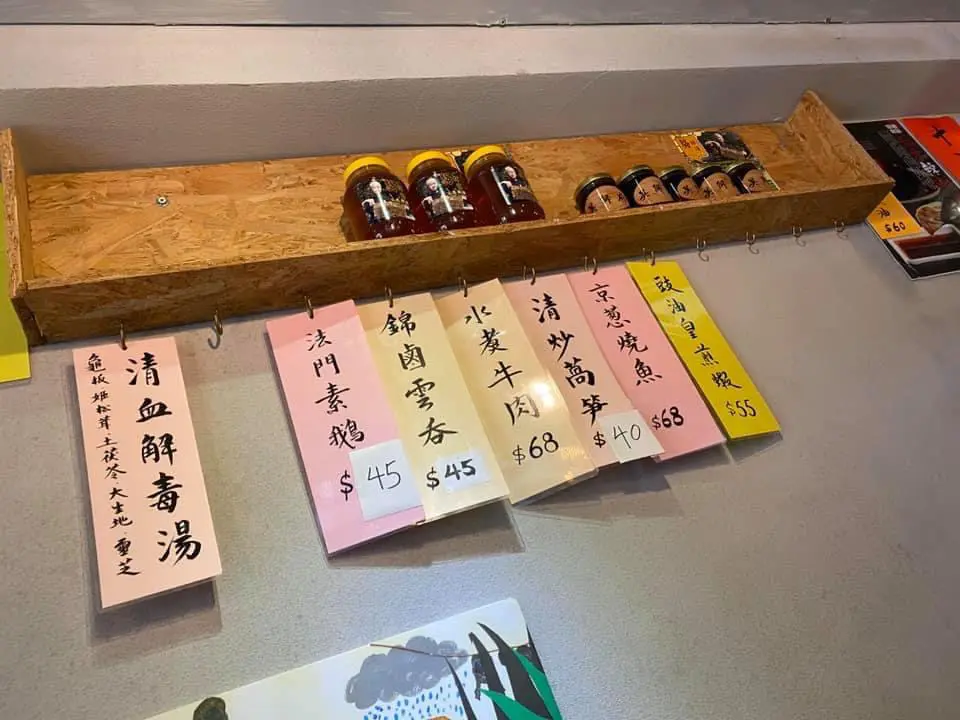 清血解毒湯
龜板.姬松茸.土茯苓.大生地.靈芝
法門素鵝
$45
錦鹵雲吞
$45
水煮牛肉
$68
清炒萵筍
$40
京葱燒魚
$68
豉油皇煎蝦
$55
油
$60